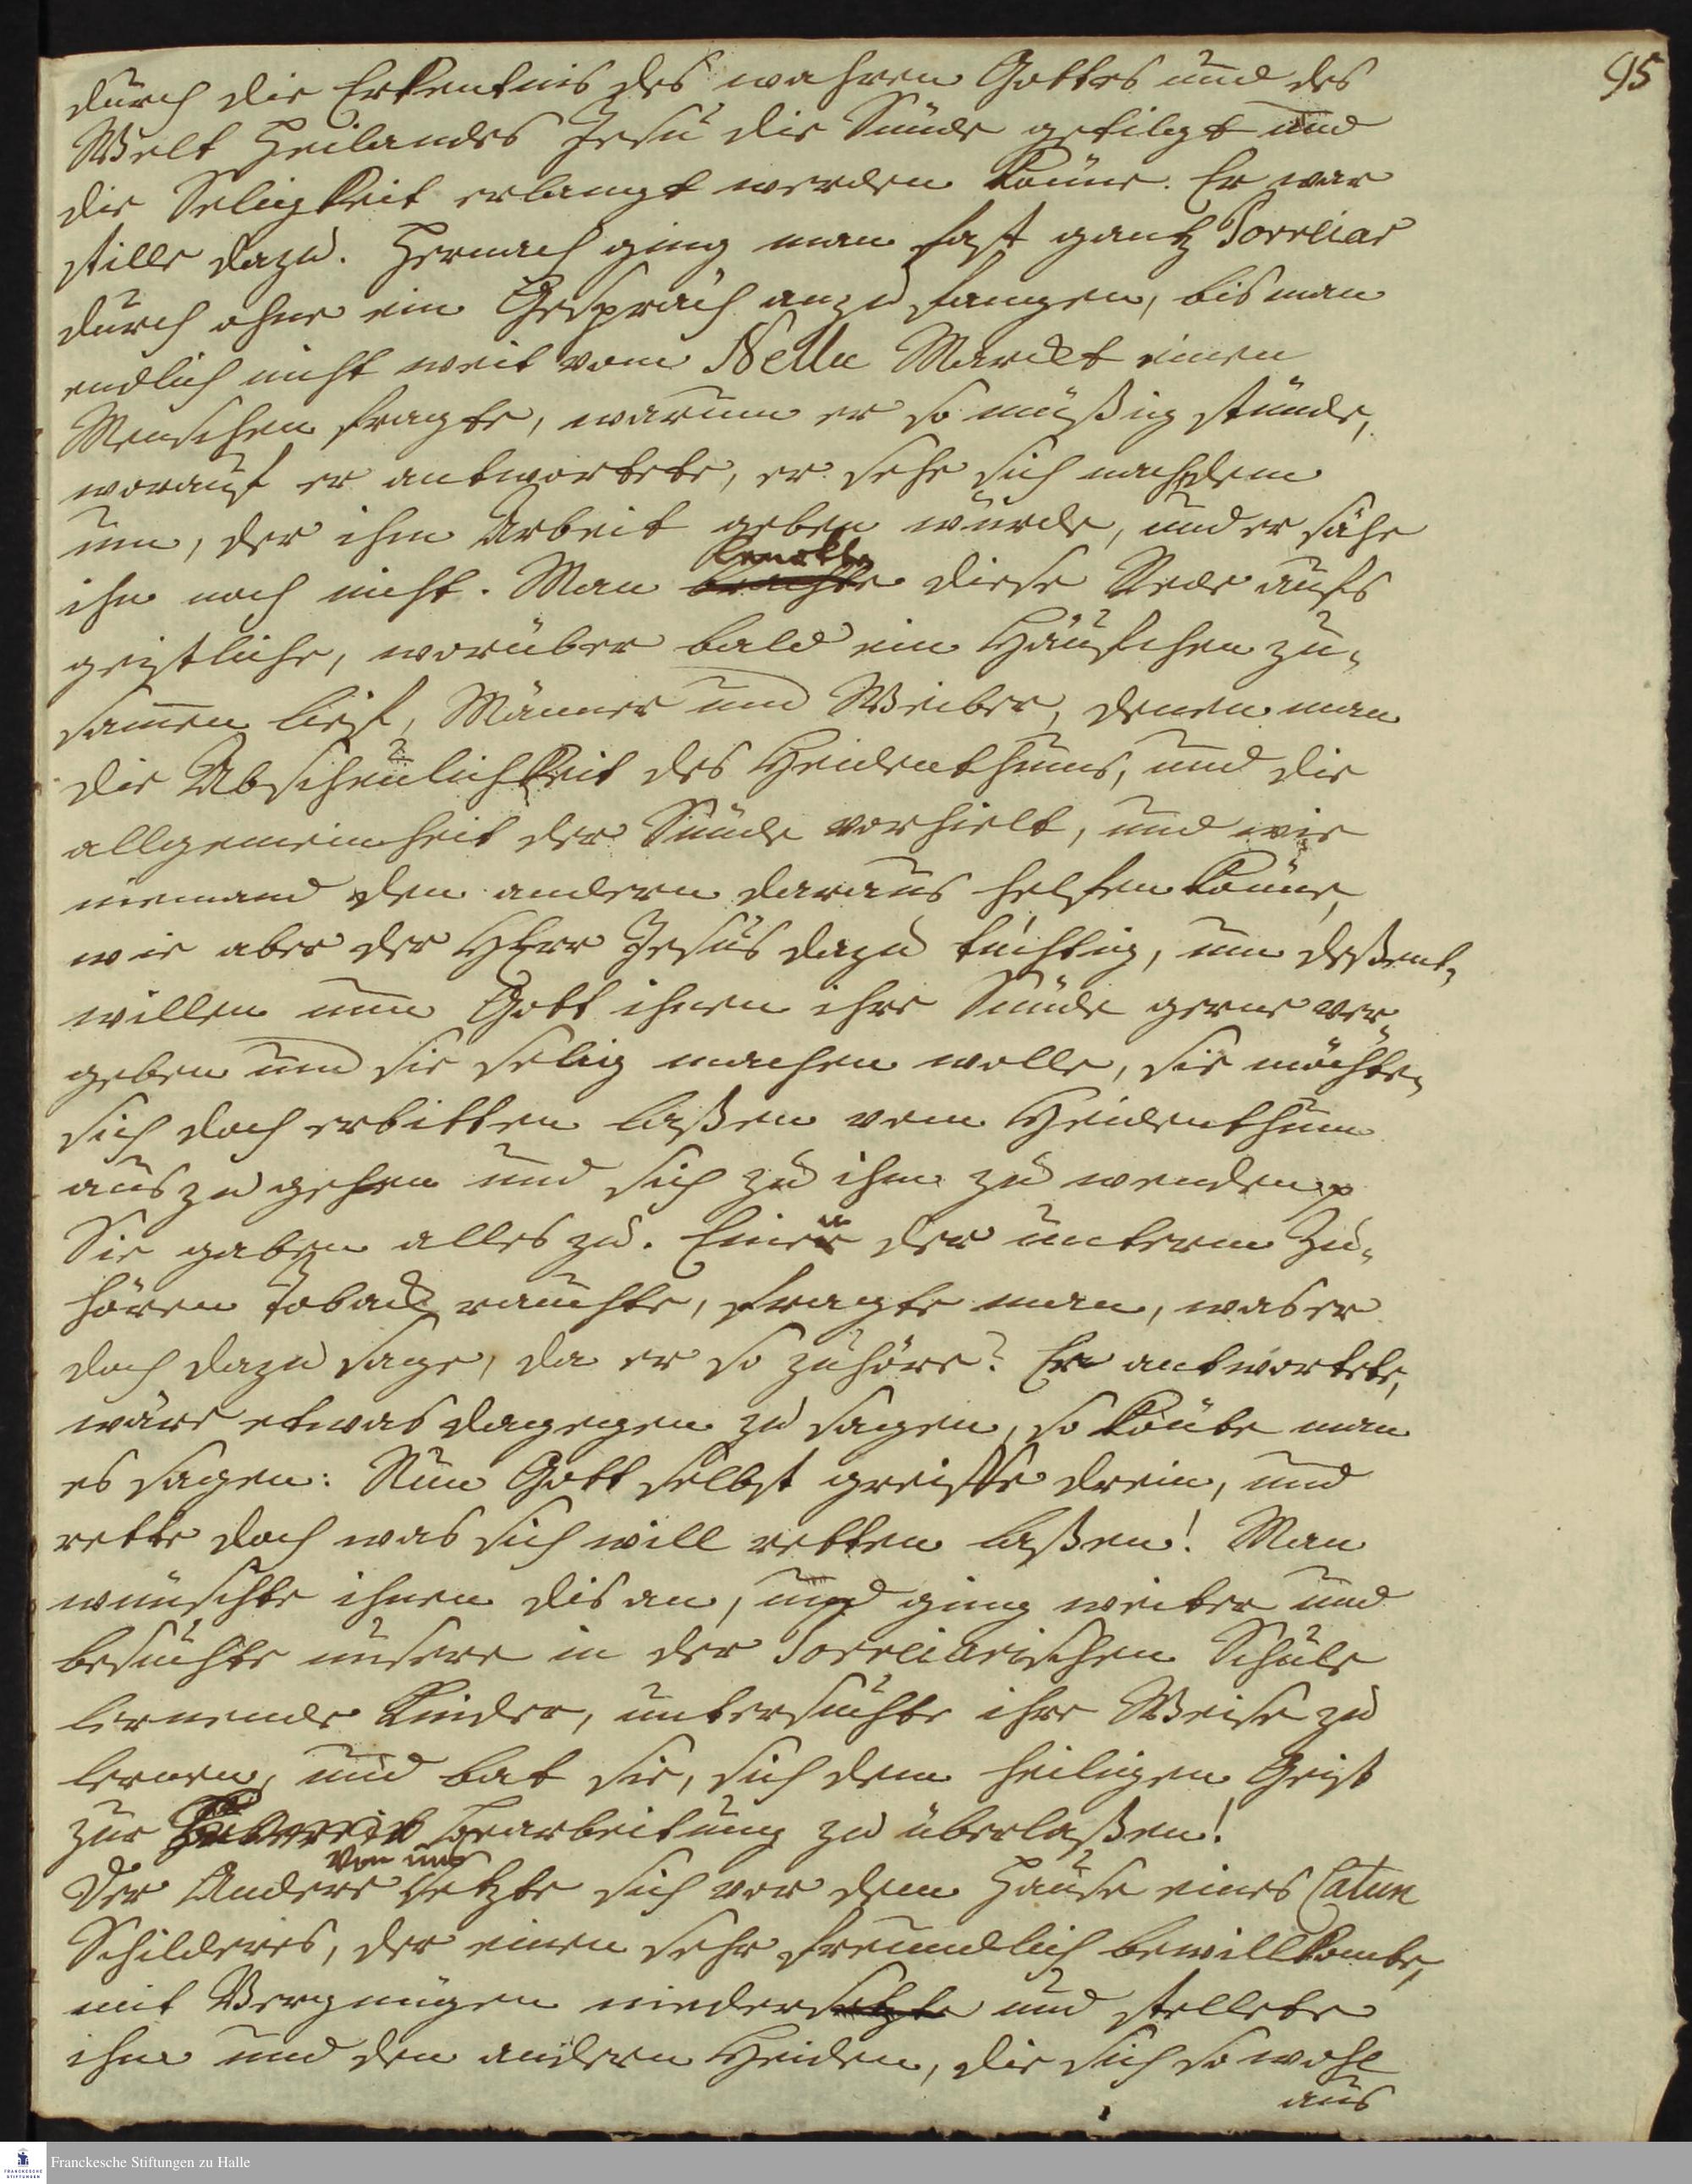 95
durch die Erkentnis des wahren Gottes und des
Welt Heilandes Jesu die Sünde getilgt und
die Seligkeit erlangt werden könne. Er war
stille dazu. Hernach ging man fast gantz Porreiar
durch ohne ein Gespräch anzufangen, bis man
endlich nicht weit vom Nellu Marckt einen
Menschen fragte, warum er so müßig stünde,
worauf er antwortete, er sehe sich nach dem
um, der ihm Arbeit geben würde, und er sähe
ihn noch nicht. Man lenckte diese Rede aufs
geistliche, worüber bald ein Häufchen zu-
sam̄en lief, Männer und Weiber, denen man
die Abscheulichkeit des Heidenthums, und die
allgemeinheit der Sünde vorhielt, und wie
niemand den andern daraus helfen könne,
wie aber der HErr Jesus dazu tüchtig, um deßent-
willen nun Gott ihnen ihre Sünde gerne ver-
geben und sie selig machen wolle, sie möchten
sich doch erbitten laßen vom Heidenthum
auszugehen und sich zu ihm zu wenden p
Sie gaben alles zu. Einen der unterm Zu-
hören Toback rauchte, fragte man, was er
doch dazu sage, da er so zuhöre? Er antwortete,
wäre etwas dagegen zu sagen, so könte man
es sagen: Nun Gott selbst greiffe drein, und
rette doch was sich will retten laßen! Man
wünschte ihnen dis an, und ging weiter und
besuchte unsere in der Porreiarischen Schule
lernende Kinder, untersuchte ihre Weise zu
lernen, und bat sie, sich dem heiligen Geist
zur Bearbeitung zu überlaßen!
von uns
Der Andere setzte sich vor dem Hause eines Catun
Schilderers, der einen sehr freundlich bewillkomte,
mit Vergnügen nieder setzte und stellete
ihm und den andern Heiden, die sich so wohl
aus
Franckesche Stiftungen zu Halle